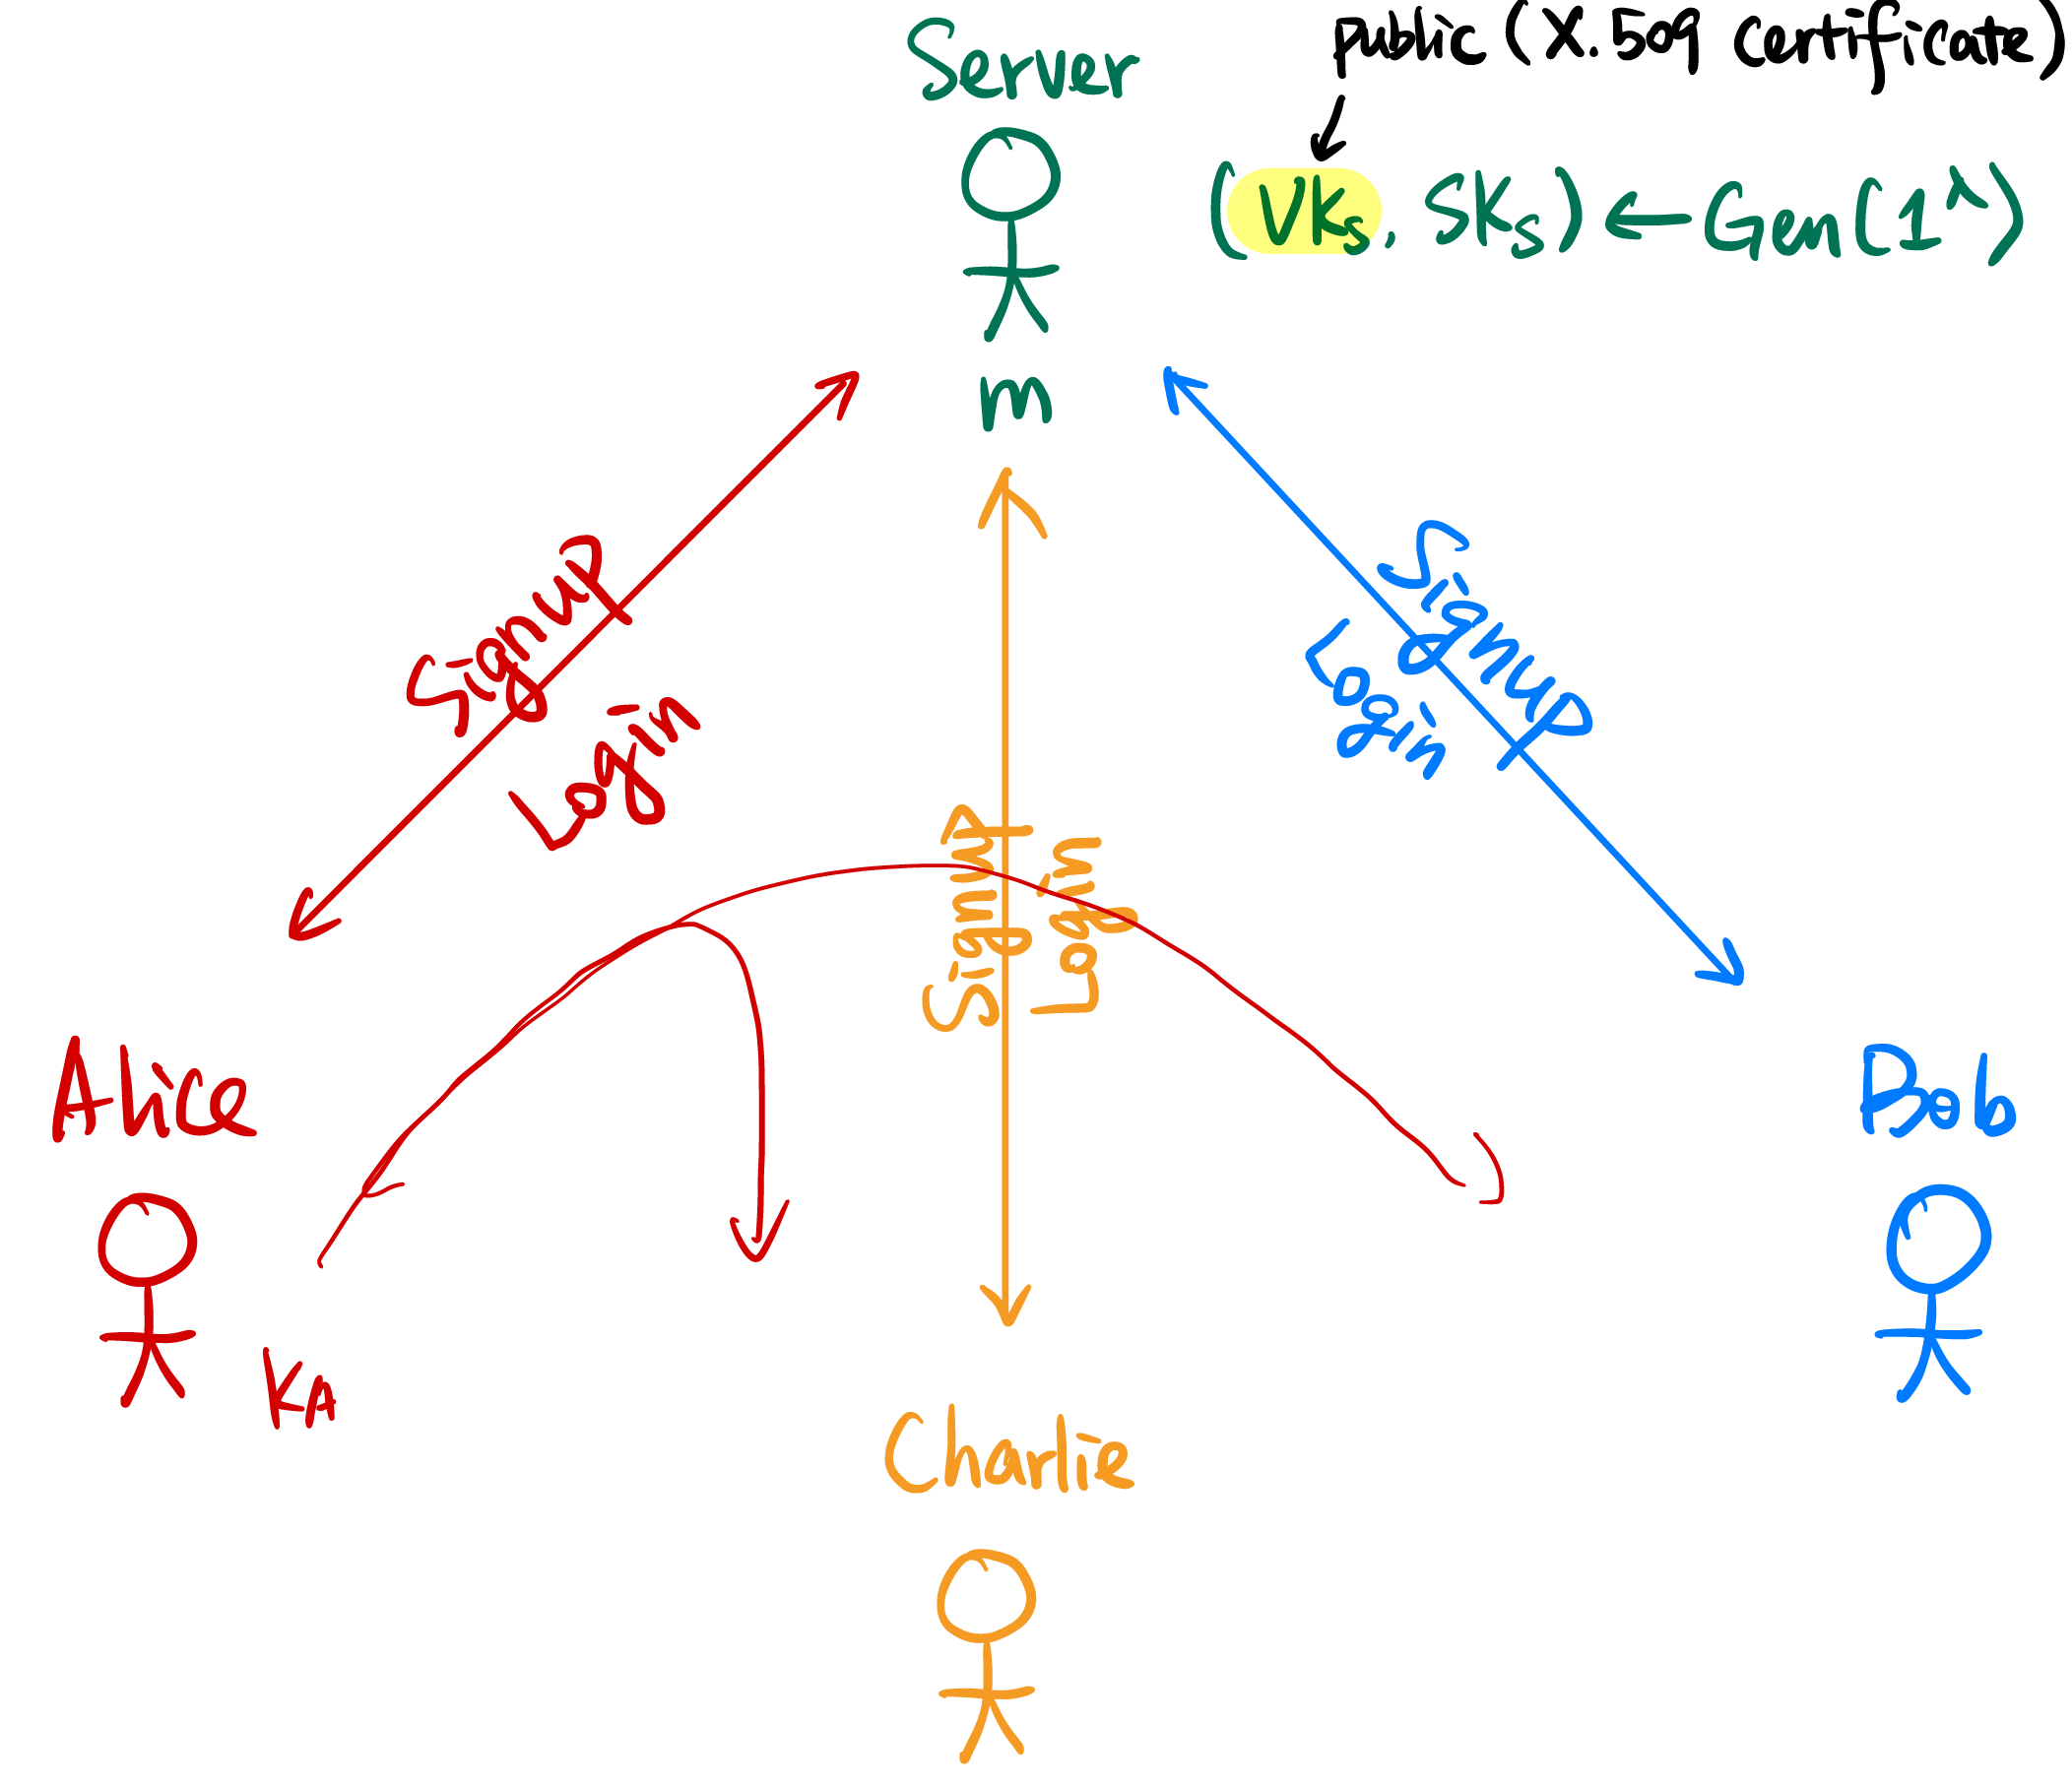 Server
public (X.509 Certificate)
(Vks, Sks) ← Gen(1^λ)
m
Signup
Login
Signup
Login
Signup
Login
Alice
Bob
KA
Charlie